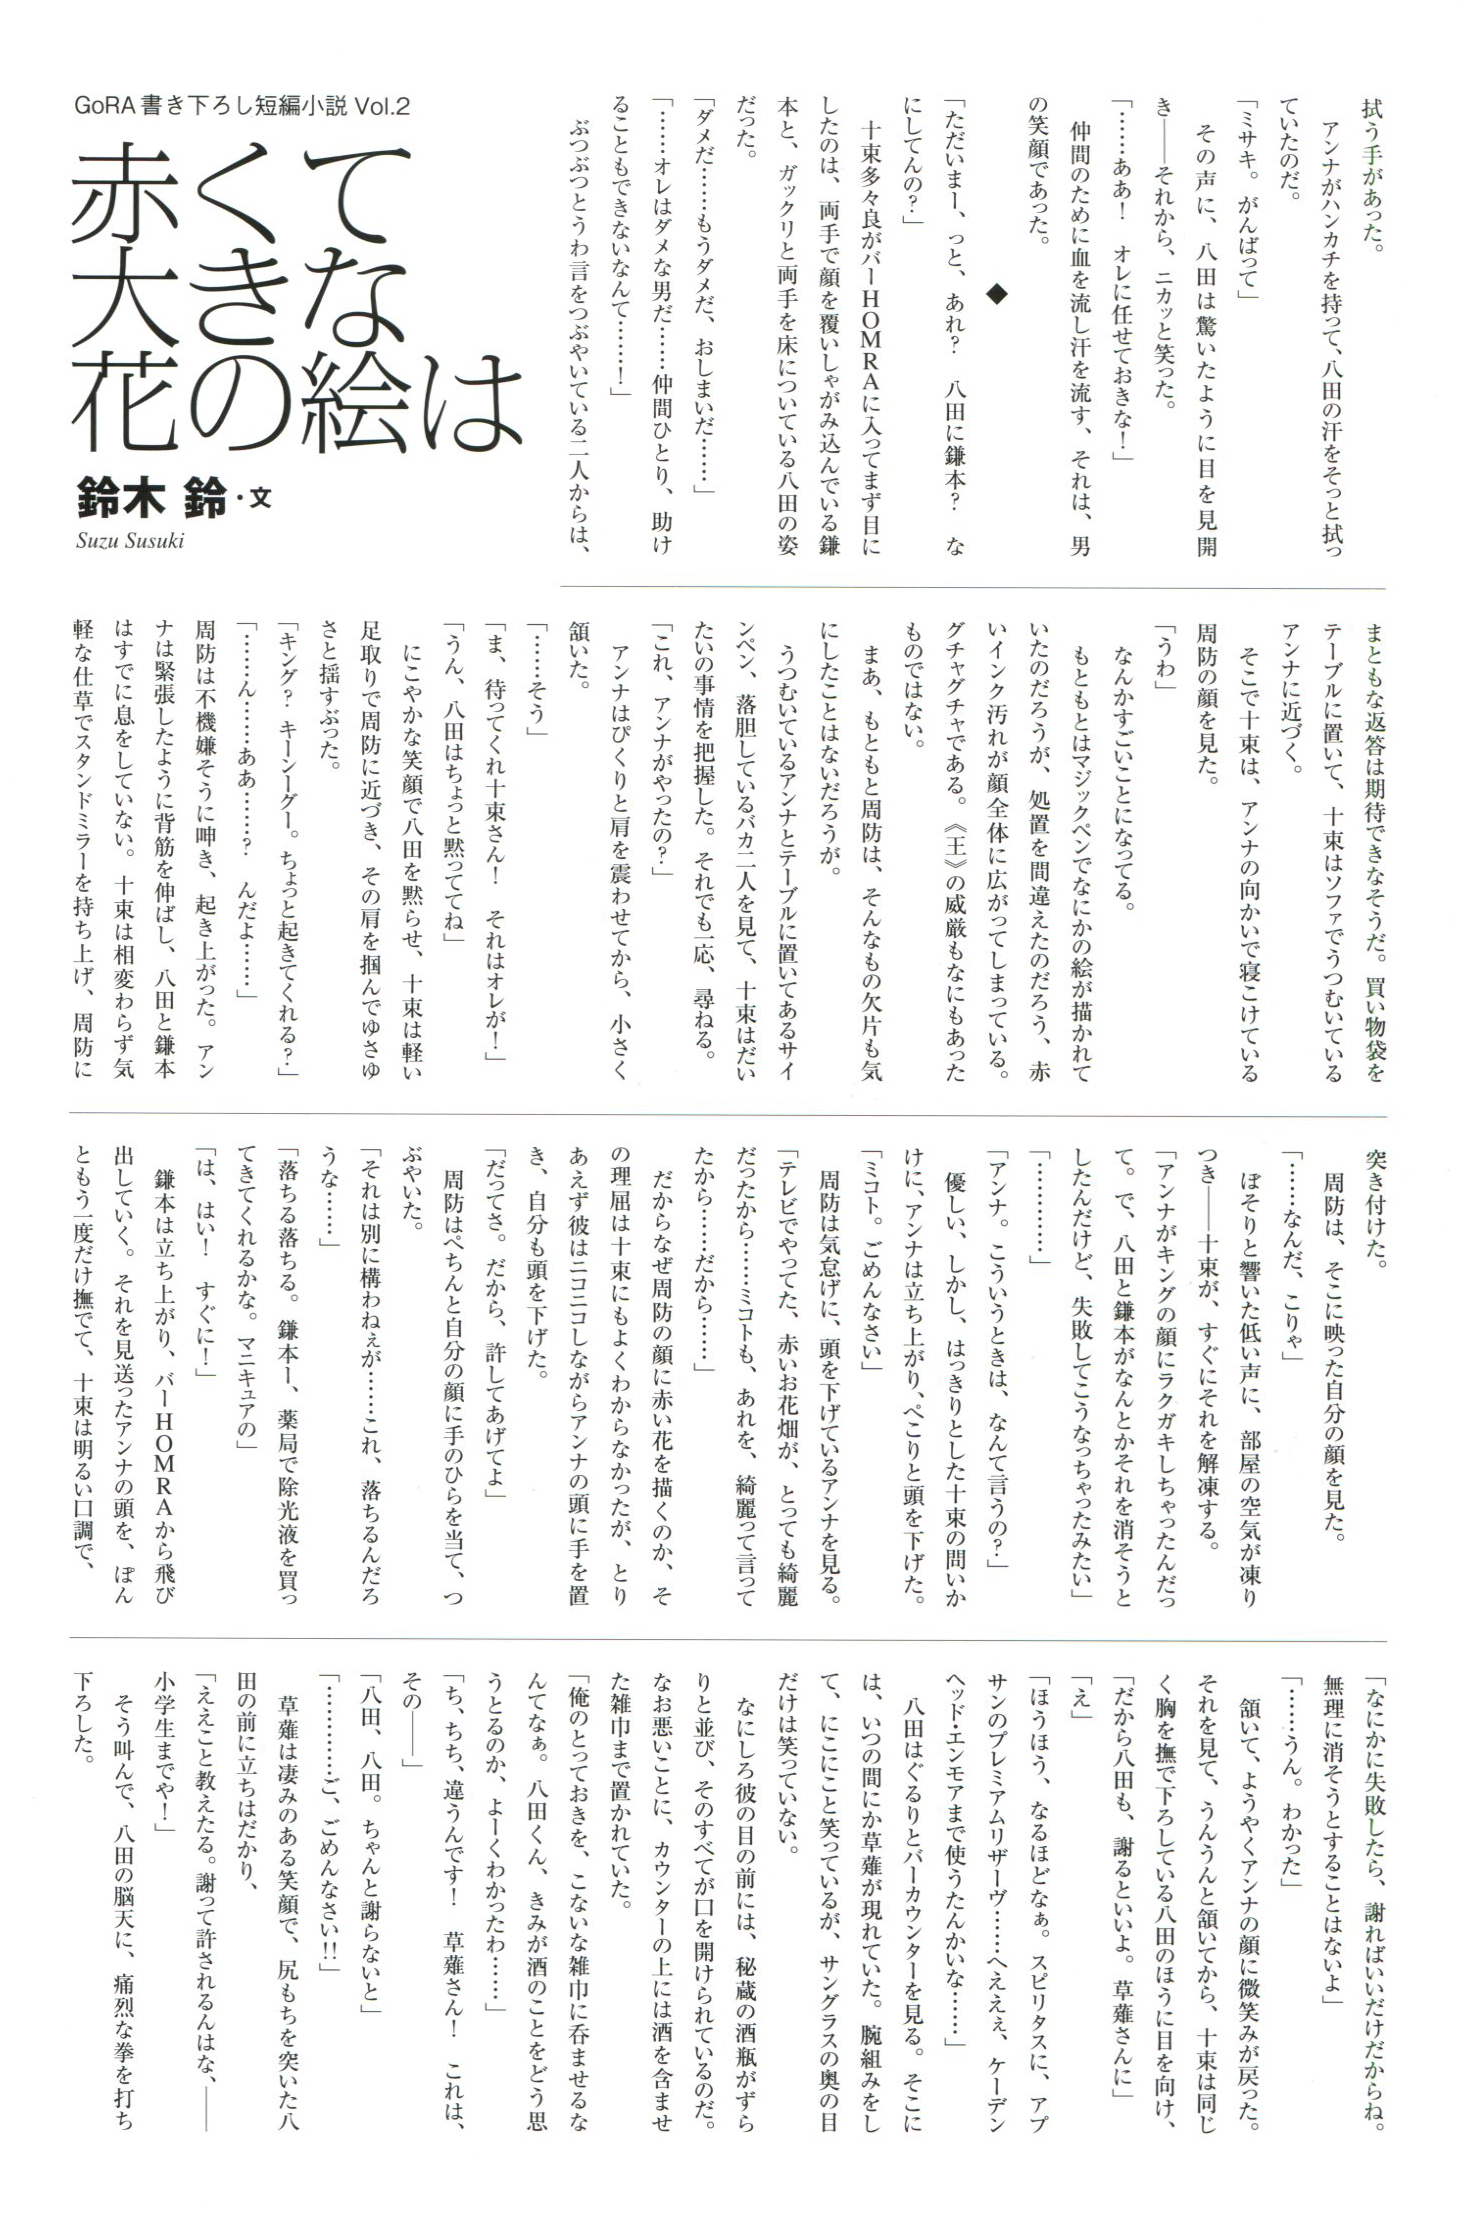 GoRA書き下ろし短編小説 Vol.2
赤くて
大きな
花の絵は
鈴木 鈴・文
Suzu Susuki
拭う手があった。
　アンナがハンカチを持って、八田の汗をそっと拭っ
ていたのだ。
「ミサキ。がんばって」
　その声に、八田は驚いたように目を見開
き――それから、ニカッと笑った。
「……ああ！　オレに任せておきな！」
　仲間のために血を流し汗を流す、それは、男
の笑顔であった。
◆
「ただいまー、っと、あれ？　八田に鎌本？　な
にしてんの？」
　十束多々良がバーHOMRAに入ってまず目に
したのは、両手で顔を覆いしゃがみ込んでいる鎌
本と、ガックリと両手を床についている八田の姿
だった。
「ダメだ……もうダメだ、おしまいだ……」
「……オレはダメな男だ……仲間ひとり、助け
ることもできないなんて……！」
　ぶつぶつとうわ言をつぶやいている二人からは、
まともな返答は期待できなそうだ。買い物袋を
テーブルに置いて、十束はソファでうつむいている
アンナに近づく。
　そこで十束は、アンナの向かいで寝こけている
周防の顔を見た。
「うわ」
　なんかすごいことになってる。
　もともとはマジックペンでなにかの絵が描かれて
いたのだろうが、処置を間違えたのだろう、赤
いインク汚れが顔全体に広がってしまっている。
グチャグチャである。《王》の威厳もなにもあった
ものではない。
　まあ、もともと周防は、そんなもの欠片も気
にしたことはないだろうが。
　うつむいているアンナとテーブルに置いてあるサイ
ンペン、落胆しているバカ二人を見て、十束はだい
たいの事情を把握した。それでも一応、尋ねる。
「これ、アンナがやったの？」
　アンナはぴくりと肩を震わせてから、小さく
頷いた。
「……そう」
「ま、待ってくれ十束さん！　それはオレが！」
「うん、八田はちょっと黙っててね」
　にこやかな笑顔で八田を黙らせ、十束は軽い
足取りで周防に近づき、その肩を掴んでゆさゆ
さと揺すぶった。
「キング？ キーングー。ちょっと起きてくれる？」
「……ん……ああ……？　んだよ……」
周防は不機嫌そうに呻き、起き上がった。アン
ナは緊張したように背筋を伸ばし、八田と鎌本
はすでに息をしていない。十束は相変わらず気
軽な仕草でスタンドミラーを持ち上げ、周防に
突き付けた。
　周防は、そこに映った自分の顔を見た。
「……なんだ、こりゃ」
　ぼそりと響いた低い声に、部屋の空気が凍り
つき――十束が、すぐにそれを解凍する。
「アンナがキングの顔にラクガキしちゃったんだっ
て。で、八田と鎌本がなんとかそれを消そうと
したんだけど、失敗してこうなっちゃったみたい」
「…………」
「アンナ。こういうときは、なんて言うの？」
　優しい、しかし、はっきりとした十束の問いか
けに、アンナは立ち上がり、ぺこりと頭を下げた。
「ミコト。ごめんなさい」
　周防は気怠げに、頭を下げているアンナを見る。
「テレビでやってた、赤いお花畑が、とっても綺麗
だったから……ミコトも、あれを、綺麗って言って
たから……だから……」
　だからなぜ周防の顔に赤い花を描くのか、そ
の理屈は十束にもよくわからなかったが、とり
あえず彼はニコニコしながらアンナの頭に手を置
き、自分も頭を下げた。
「だってさ。だから、許してあげてよ」
　周防はぺちんと自分の顔に手のひらを当て、つ
ぶやいた。
「それは別に構わねぇが……これ、落ちるんだろ
うな……」
「落ちる落ちる。鎌本ー、薬局で除光液を買っ
てきてくれるかな。マニキュアの」
「は、はい！　すぐに！」
　鎌本は立ち上がり、バーHOMRAから飛び
出していく。それを見送ったアンナの頭を、ぽん
ともう一度だけ撫でて、十束は明るい口調で、
「なにかに失敗したら、謝ればいいだけだからね。
無理に消そうとすることはないよ」
「……うん。わかった」
　頷いて、ようやくアンナの顔に微笑みが戻った。
それを見て、うんうんと頷いてから、十束は同じ
く胸を撫で下ろしている八田のほうに目を向け、
「だから八田も、謝るといいよ。草薙さんに」
「え」
「ほうほう、なるほどなぁ。スピリタスに、アプ
サンのプレミアムリザーヴ……へええぇ、ケーデン
ヘッド・エンモアまで使うたんかいな……」
　八田はぐるりとバーカウンターを見る。そこに
は、いつの間にか草薙が現れていた。腕組みをし
て、にこにこと笑っているが、サングラスの奥の目
だけは笑っていない。
　なにしろ彼の目の前には、秘蔵の酒瓶がずら
りと並び、そのすべてが口を開けられているのだ。
なお悪いことに、カウンターの上には酒を含ませ
た雑巾まで置かれていた。
「俺のとっておきを、こないな雑巾に呑ませるな
んてなぁ。八田くん、きみが酒のことをどう思
うとるのか、よーくわかったわ……」
「ち、ちち、違うんです！　草薙さん！　これは、
その――」
「八田、八田。ちゃんと謝らないと」
「…………ご、ごめんなさい!!」
　草薙は凄みのある笑顔で、尻もちを突いた八
田の前に立ちはだかり、
「ええこと教えたる。謝って許されるんはな、――
小学生までや！」
　そう叫んで、八田の脳天に、痛烈な拳を打ち
下ろした。